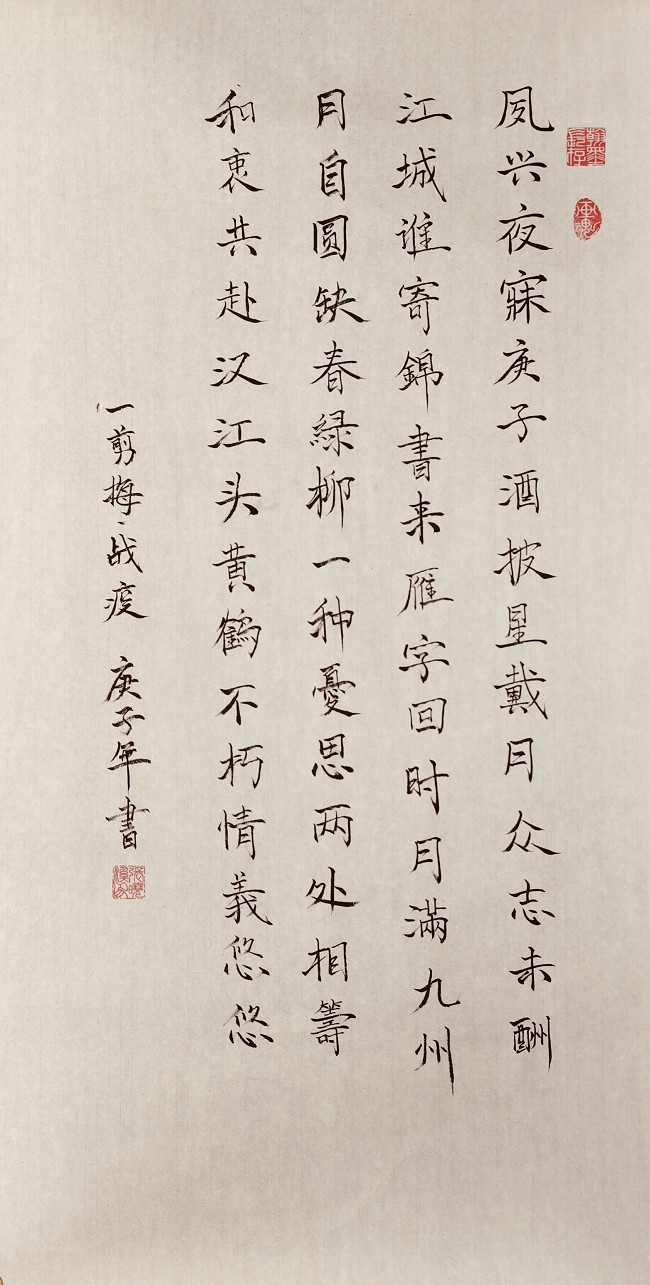 夙兴夜寐庚子酒披星戴月众志未酬
江城谁寄錦書来雁字回时月滿九州
月自圆缺春緑柳一种憂思两处相籌
和衷共赴汉江头黄鶴不朽情義悠悠
一剪梅、战疫 庚子年書